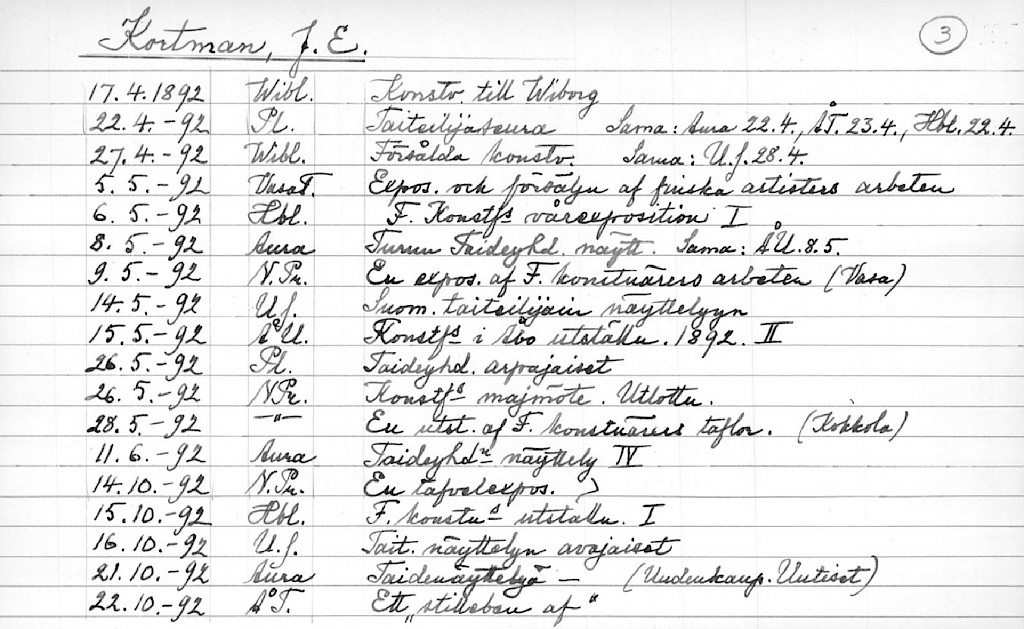 Kortman, J. E. 3
17.4.1892 Wibl. Konstv. till Wiborg
22.4.-92 Pl. Taiteilijaseura Sama: Aura 22.4., ÅT. 23.4., Hbl. 22.4.
27.4.-92 Wibl. Försålda konstv. Sama: U.S. 28.4.
5.5.-92 VasaT. Expos. och försäljn af finska artisters arbeten
6.5.-92 Hbl. F. Konstfs vårexposition I
8.5.-92 Aura Turun Taideyhd. näytt. Sama: ÅU. 8.5.
9.5.-92 N.Pr. En expos. af F. konstnärers arbeten (Vasa)
14.5.-92 U.S. Suom. taiteilijain näyttelyyn
15.5.-92 ÅU. Konstfs i Åbo utställn. 1892. II
26.5.-92 Pl. Taideyhd. arpajaiset
26.5.-92 N.Pr. Konstfs majmöte. Utlottn.
28.5.-92 -"- En utst. af F. konstnärers taflor. (Kokkola)
11.6.-92 Aura Taideyhdn näyttely IV
14.10.-92 N.Pr. En tafvelexpos.
15.10.-92 Hbl. F. konstns utställn. I
16.10.-92 U.S. Tait. näyttelyn avajaiset
21.10.-92 Aura Taidenäyttelyä - (Uudenkaup. Uutiset)
22.10.-92 ÅT. Ett "stilleben af"